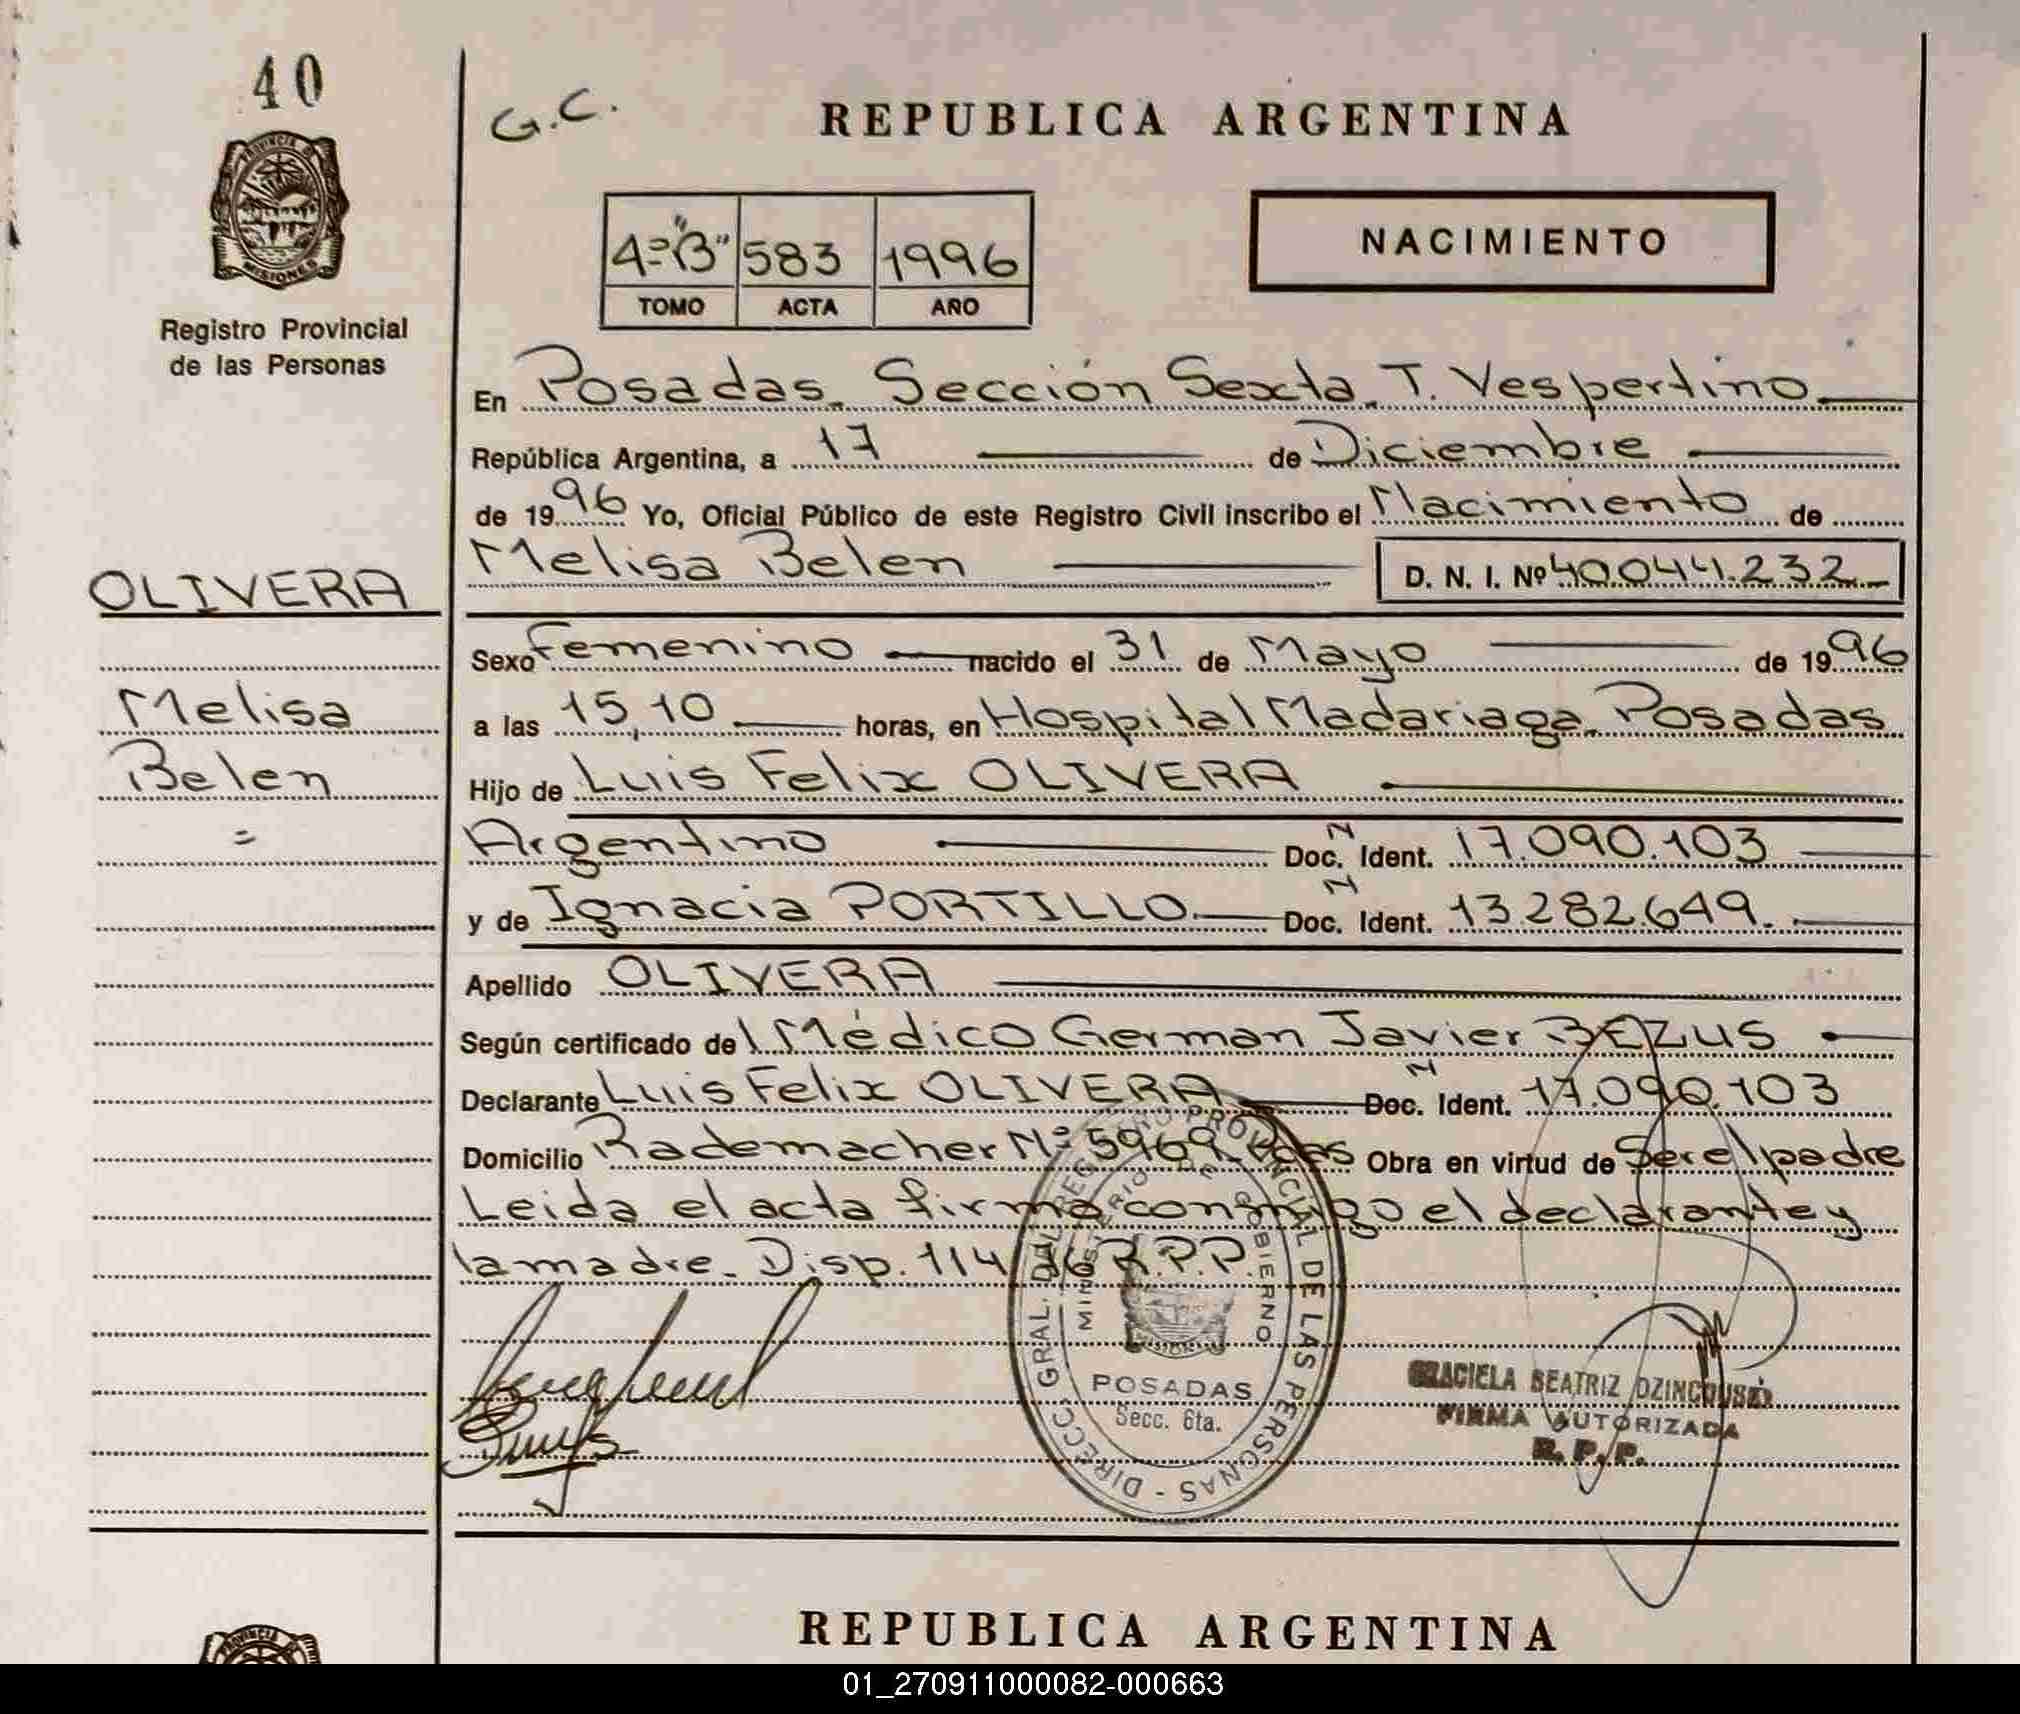 40
G.C.
REPUBLICA ARGENTINA
PROVINCIA DE
MISIONES
Registro Provincial
de las Personas
4º "B" 583 1996
TOMO ACTA AÑO
NACIMIENTO
En Posadas. Sección Sexta. T. Vespertino
República Argentina, a 17 de Diciembre
de 1996 Yo, Oficial Público de este Registro Civil inscribo el Nacimiento de
Melisa Belen D. N. I. Nº 40.044.232
OLIVERA
Melisa
Belen
Sexo Femenino nacido el 31 de Mayo de 1996
a las 15,10 horas, en Hospital Madariaga. Posadas
Hijo de Luis Felix OLIVERA
Argentino Doc. N Ident. 17.090.103
y de Ignacia PORTILLO. Doc. N Ident. 13.282.649.
Apellido OLIVERA
Según certificado del Médico German Javier BEZUS
Declarante Luis Felix OLIVERA Doc. N Ident. 17.090.103
Domicilio Rademacher Nº 5969 Pdas Obra en virtud de Ser el padre
Leida el acta firma conmigo el declarante y
la madre. Disp. 114/96 R.P.P.
DIRECC. GRAL. DEL REGISTRO PROVINCIAL DE LAS PERSONAS
MINISTERIO DE GOBIERNO
POSADAS
Secc. 6ta.
GRACIELA BEATRIZ
FIRMA AUTORIZADA
R. P. P.
REPUBLICA ARGENTINA
PROVINCIA
01_270911000082-000663